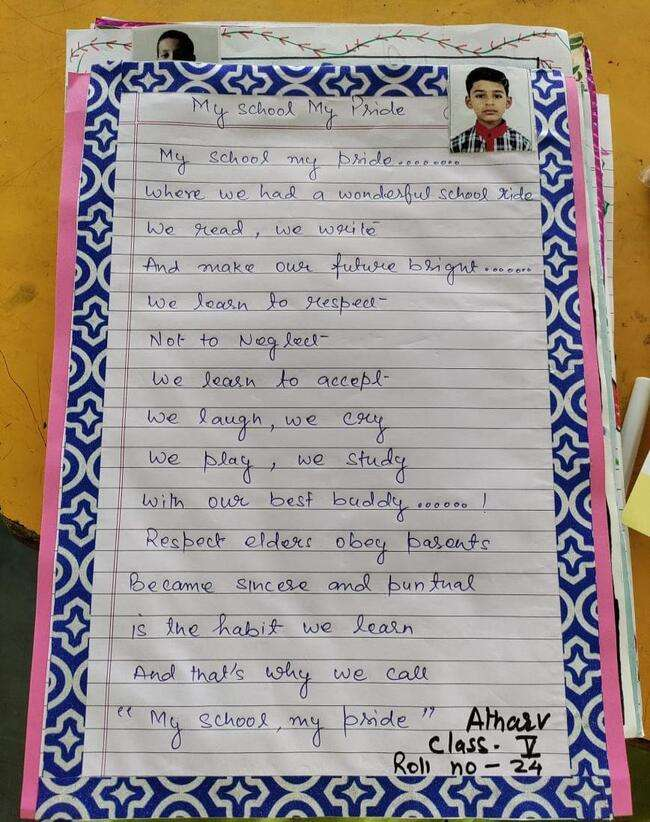 My school My Pride
My school my pride.........
Where we had a wonderful school ride
We read, we write
And make our future bright.......
We learn to respect
Not to Neglect
We learn to accept
We laugh, we cry
We play, we study
with our best buddy ...... !
Respect elders obey parents
Became sincere and puntual
is the habit we learn
And that's why we call
“ My school, my pride ”
Atharv
Class. V
Roll no - 24